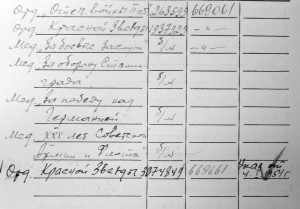 Орд. Отеч войны II ст 263599 669061
Орд. Красной Звезды 1937929 -"-
Мед. За боевые заслуги б/н
Мед. За оборону Сталин-
града б/н
Мед. За победу над
Германией б/н
Мед. XXX лет Советской
Армии и Флота б/н
Орд. Красной Звезды 3074849 669061 Указ от